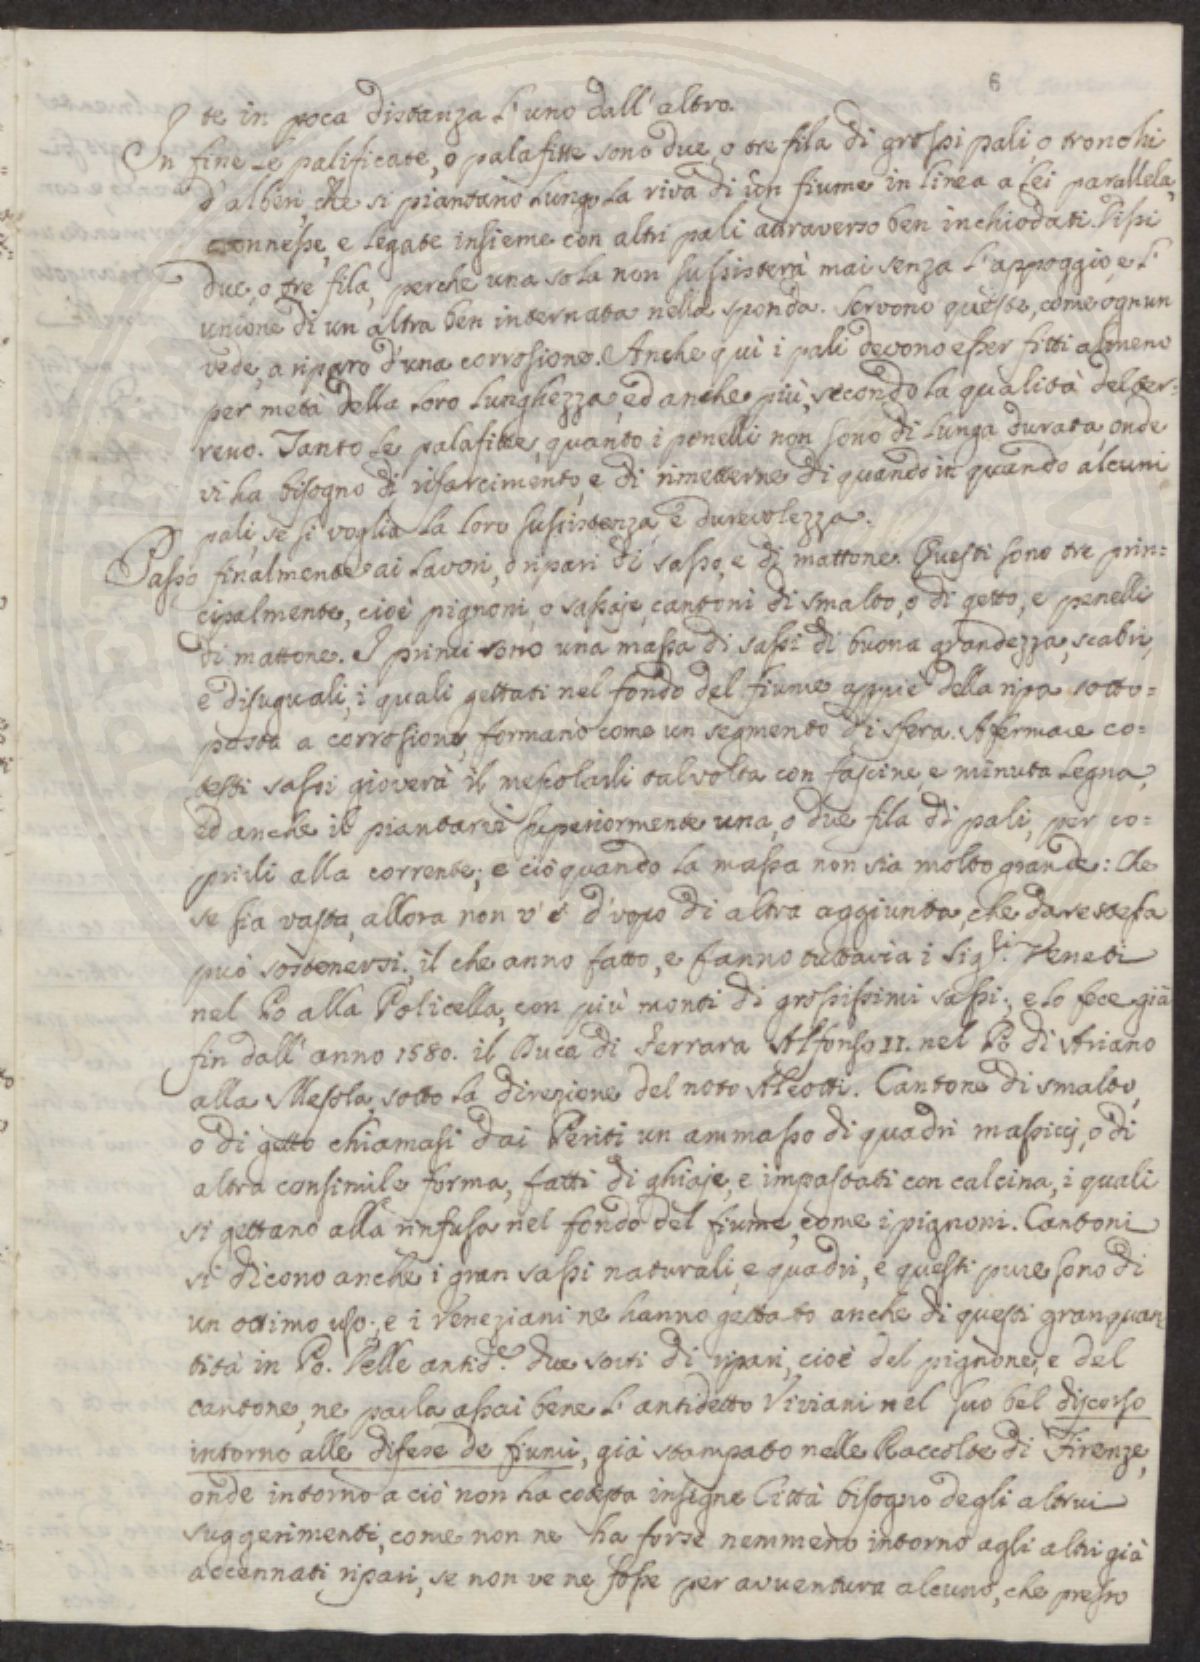 6
te in poca distanza l'uno dall'altro.
In fine le palificate, o palafitte sono due, o tre fila di grossi pali, o tronchi
d'alberi, che si piantano lungo la riva di un fiume in linea a lei parallela,
connesse, e legate insieme con altri pali attraverso ben inchiodati. Dissi
due, o tre fila, perche una sola non sussisterà mai senza l'appoggio, e l'
unione di un altra ben internata nella sponda. Servono queste, come ognun
vede, a riparo d'una corrosione. Anche quì i pali devono esser fitti almeno
per metà della loro lunghezza, ed anche più, secondo la qualità del ter=
reno. Tanto le palafitte, quanto i penelli non sono di lunga durata, onde
vi ha bisogno di risarcimento, e di rimetterne di quando in quando alcuni
pali, se si voglia la loro sussistenza, e durevolezza.
Passo finalmente ai lavori, o ripari di sasso, e di mattone. Questi sono tre prin=
cipalmente, cioè pignoni, o sassaje, cantoni di smalto, o di getto, e penelli
di mattone. I primi sono una massa di sassi di buona grandezza, scabri,
e disuguali, i quali gettati nel fondo del fiume appiè della ripa sotto=
posta a corrosione, formano come un segmento di sfera. A fermare co=
testi sassi gioverà il mescolarli talvolta con fascine, e minuta legna,
ed anche il piantarsi superiormente una, o due fila di pali, per co=
prirli alla corrente; e ciò quando la massa non sia molto grande: Che
se sia vasta, allora non v'è d'uopo di altra aggiunta, che da se stessa
può sostenersi; il che anno fatto, e fanno tuttavia i Sig.ri Veneti
nel Po alla Policella, con più monti di grossissimi sassi; e lo fece già
fin dall'anno 1580. il Duca di Ferrara Alfonso II. nel Pò di Ariano
alla Mesola, sotto la direzione del noto Aleotti. Cantone di smalto,
o di getto chiamasi dai Periti un ammasso di quadri massicci, o di
altra consimile forma, fatti di ghiaje, e impastati con calcina, i quali
si gettano alla rinfusa nel fondo del fiume, come i pignoni. Cantoni
si dicono anche i gran sassi naturali, e quadri, e questi pure sono di
un ottimo uso; e i Veneziani ne hanno gettato anche di questi gran quan=
tità in Po. Delle antid.e due sorti di ripari, cioè del pignone, e del
cantone, ne parla assai bene l'antidetto Viviani nel suo bel discorso
intorno alle difese de fiumi, già stampato nelle Raccolte di Firenze,
onde intorno a ciò non ha cotesta insigne Città bisogno degli altrui
suggerimenti, come non ne ha forse nemmeno intorno agli altri già
accennati ripari, se non ve ne fosse per avventura alcuno, che presso